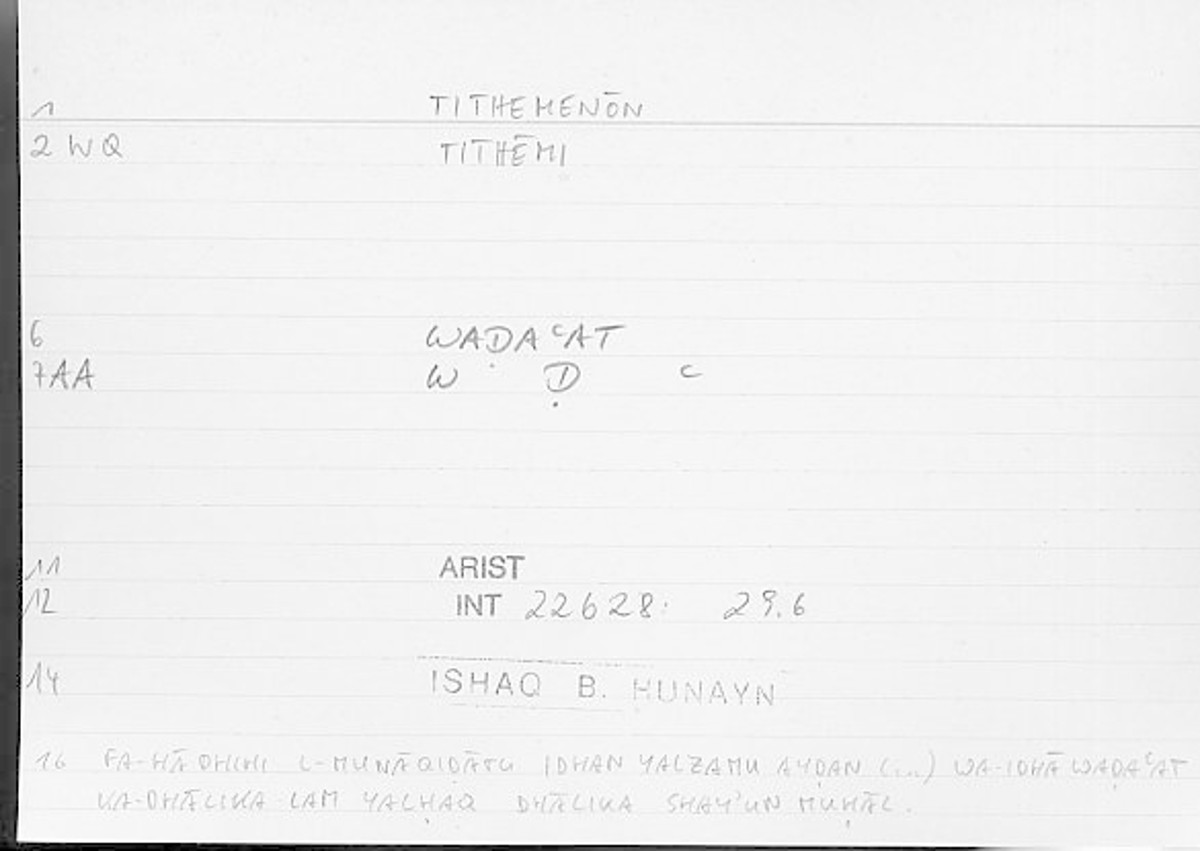 1 TITHEMENŌN
2 WQ TITHĒMI
6 WAḌAʿAT
7AA W Ḍ ʿ
11 ARIST
12 INT 22628: 29.6
14 ISHAQ B. HUNAYN
16 FA-HĀDHIHI L-MUNĀQIḌĀTU IDHAN YALZAMU AYḌAN (...) WA-IDHĀ WAḌAʿAT
KA-DHĀLIKA LAM YALḤAQ DHĀLIKA SHAY'UN MUḤĀL.